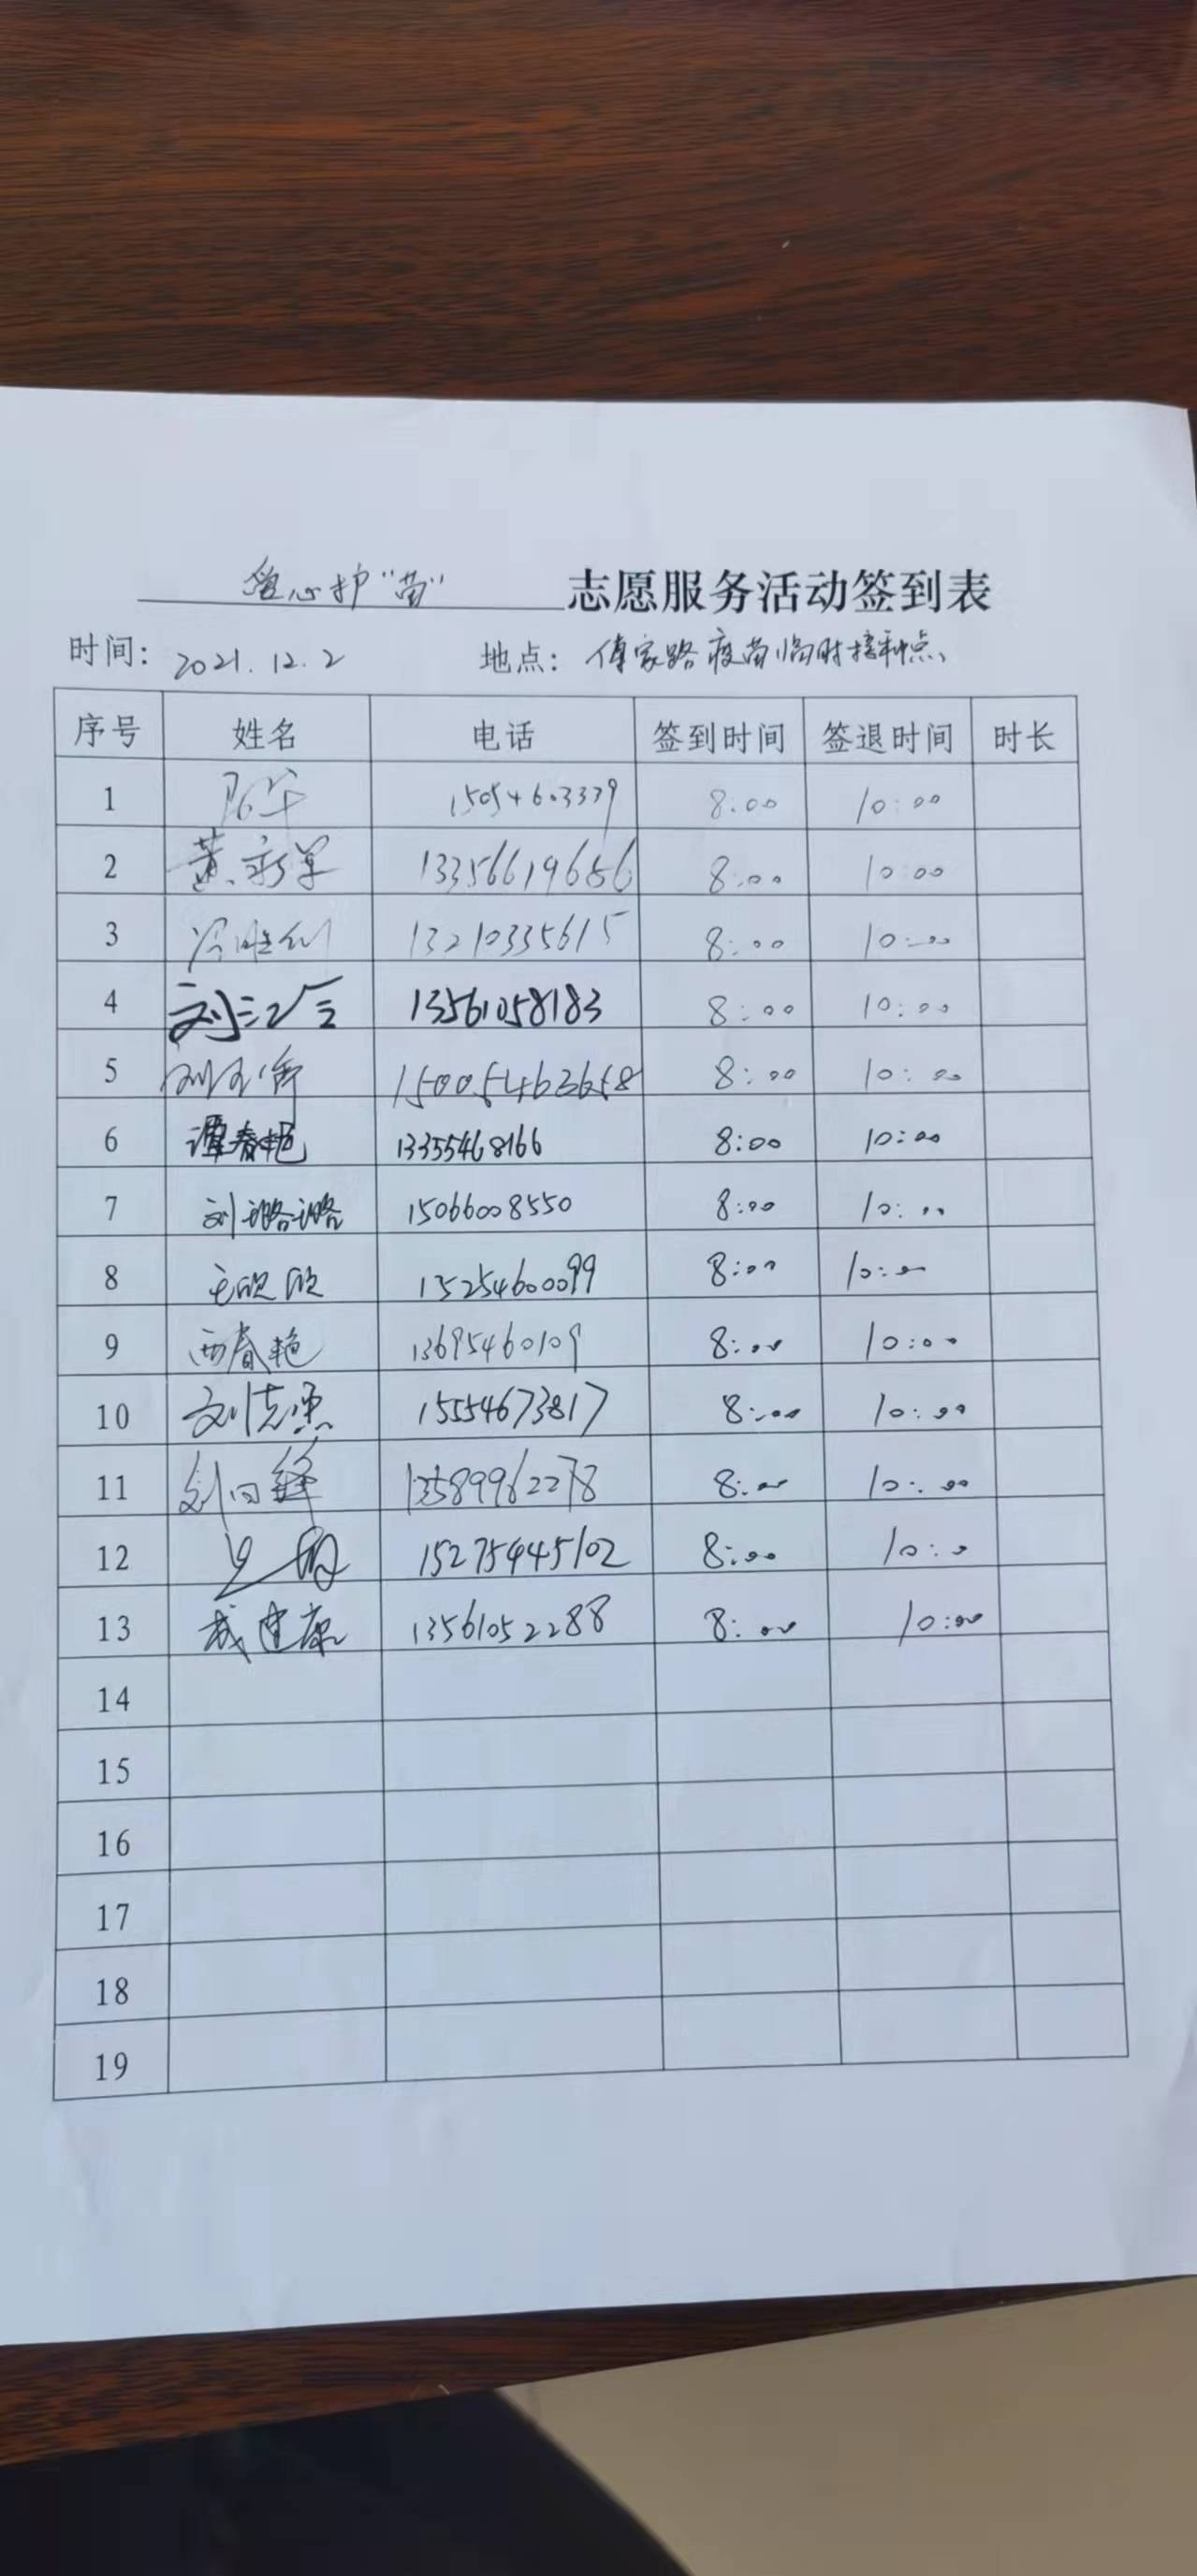 爱心护"苗" 志愿服务活动签到表
时间: 2021.12.2 地点: 傅家路疫苗临时接种点
序号 姓名 电话 签到时间 签退时间 时长
1 15054603339 8:00 10:00
2 黄 13356619656 8:00 10:00
3 13210335615 8:00 10:00
4 刘 13561058183 8:00 10:00
5 15005463658 8:00 10:00
6 谭春艳 13355468166 8:00 10:00
7 刘璐璐 15066008550 8:00 10:00
8 15254600099 8:00 10:00
9 西春艳 13695460109 8:00 10:00
10 刘志勇 15554673817 8:00 10:00
11 13589962278 8:00 10:00
12 15275445102 8:00 10:0
13 成建康 13561052288 8:00 10:00
14
15
16
17
18
19